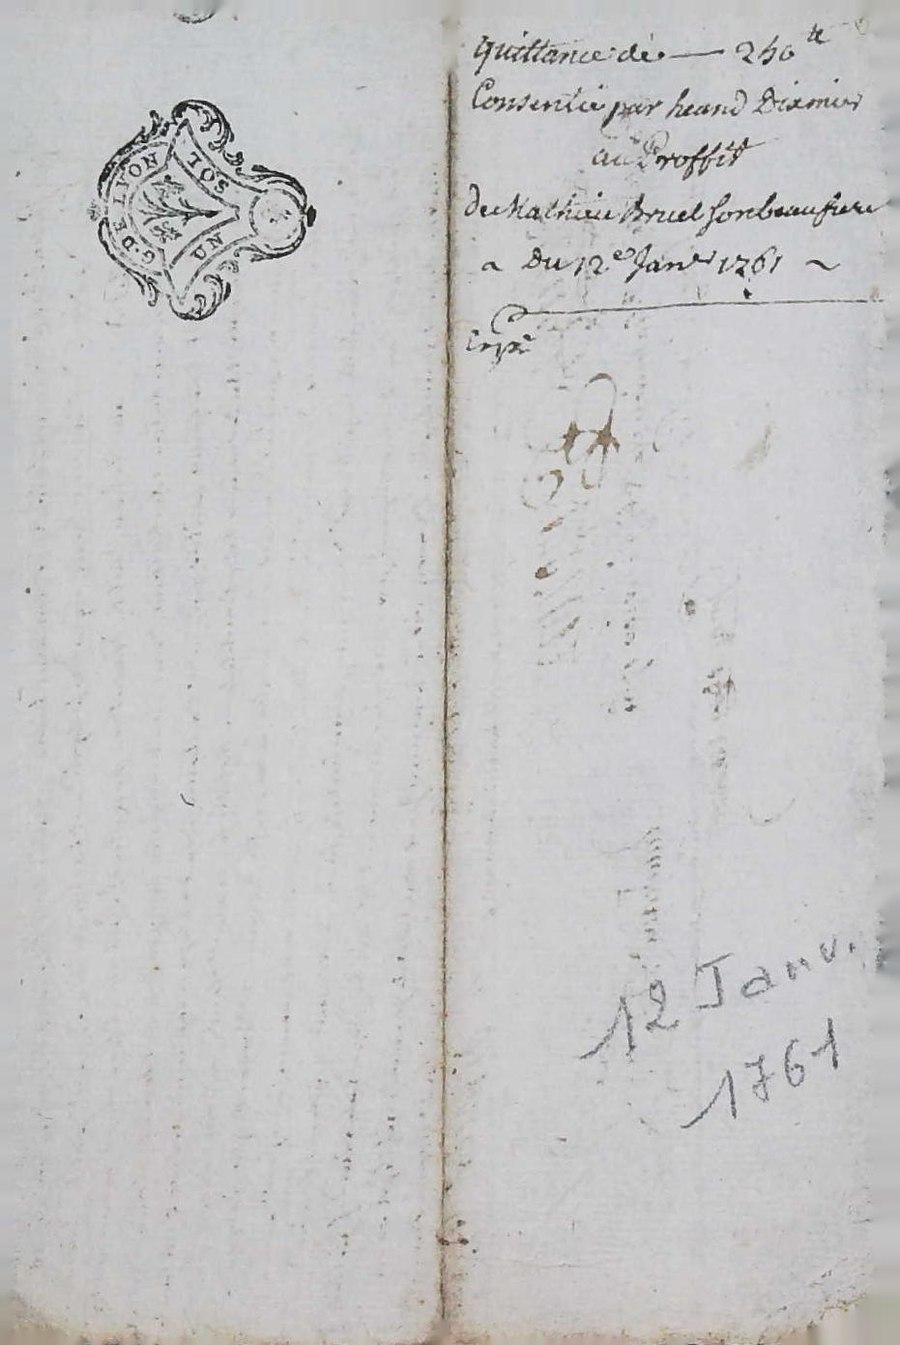 G. DE LYON
UN SOL
Quittance de — 240 ₶
Consentie par Dixmier
au Proffit
de Mathieu Bruel son beaufrere
~ Du 12e Janr 1761 ~
Expé
12 Janv.
1761